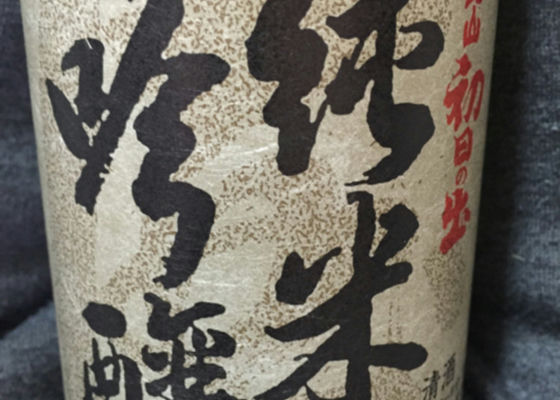 山初日の出
純米
吟醸
清酒